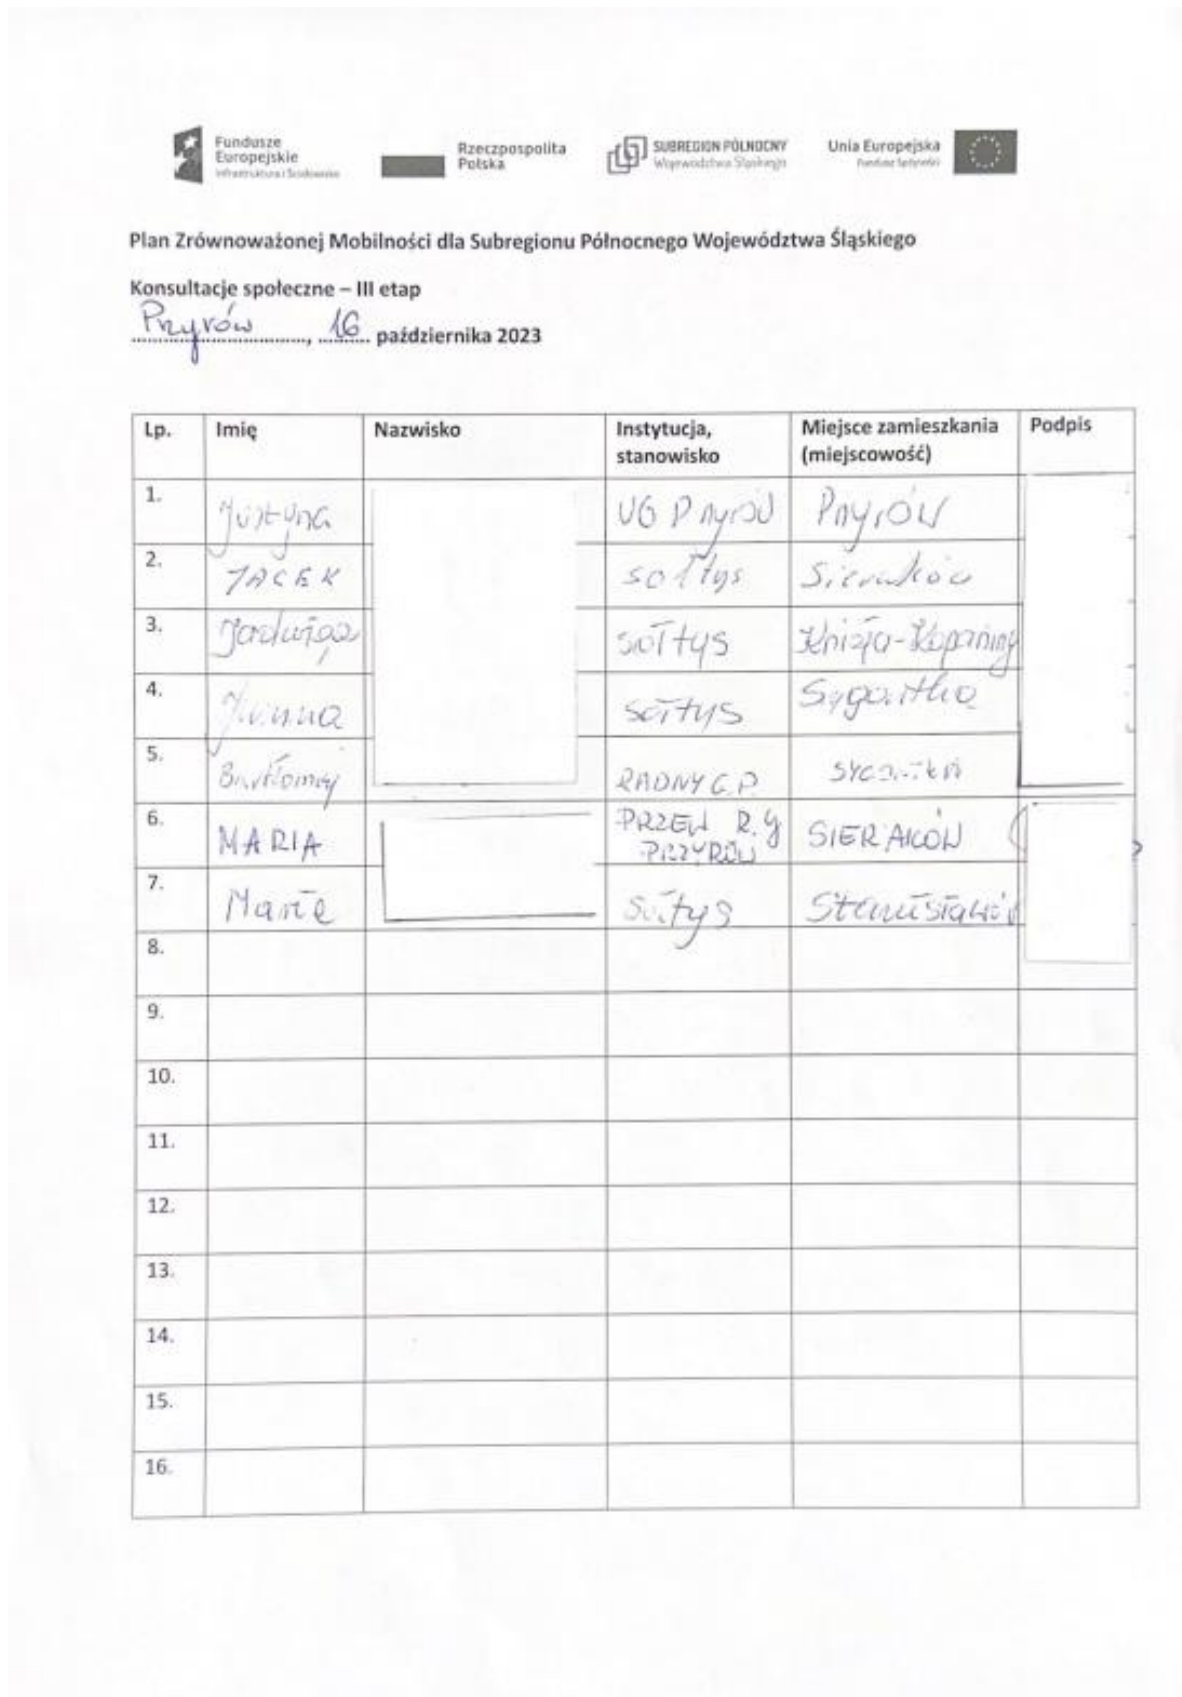 Fundusze
Europejskie
Infrastruktura i Środowisko
Rzeczpospolita
Polska
SUBREGION PÓŁNOCNY
Województwa Śląskiego
Unia Europejska
Fundusz Spójności
Plan Zrównoważonej Mobilności dla Subregionu Północnego Województwa Śląskiego
Konsultacje społeczne – III etap
Przyrów, 16 października 2023
Lp. Imię Nazwisko Instytucja, stanowisko Miejsce zamieszkania (miejscowość) Podpis
1. Justyna UG Przyrów Przyrów
2. JACEK sołtys Sieraków
3. Jadwiga sołtys Knieja-Kopaniny
4. sołtys Sygontka
5. Bartłomiej RADNY G.P. Sygontka
6. MARIA PRZEW R.G PRZYRÓW SIERAKÓW
7. Maria Sołtys Stanisławów
8.
9.
10.
11.
12.
13.
14.
15.
16.